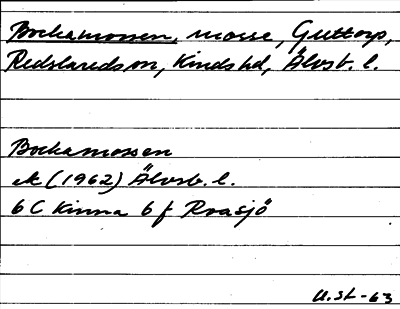 Bockamossen, mosse, Guttorp,
Redslareds sn, Kinds hd, Älvsb. l.
Bockamossen
ek (1962) Älvsb. l.
6 C Kinna 6 f Roasjö
U.St-63